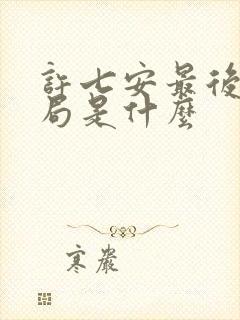 許七安最後
局是什麼
寒巖